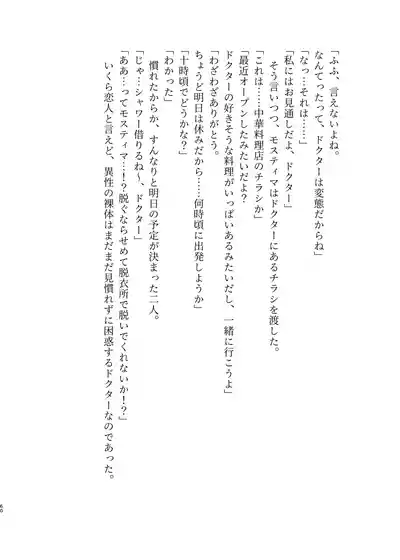 「ふふ、言えないよね。
なんてったって、ドクターは変態だからね」
「なっ…それは……」
「私にはお見通しだよ、ドクター」
そう言いつつ、モスティマはドクターにあるチラシを渡した。
「これは……中華料理店のチラシか」
「最近オープンしたみたいだよ？
ドクターの好きそうな料理がいっぱいあるみたいだし、一緒に行こうよ」
「わざわざありがとう。
ちょうど明日は休みだから……何時頃に出発しようか」
「十時頃でどうかな？」
「わかった」
慣れたからか、すんなりと明日の予定が決まった二人。
「じゃ…シャワー借りるね～、ドクター」
「ああ…ってモスティマ…！？脱ぐならせめて脱衣所で脱いでくれないか！？」
いくら恋人と言えど、異性の裸体はまだまだ見慣れずに困惑するドクターなのであった。